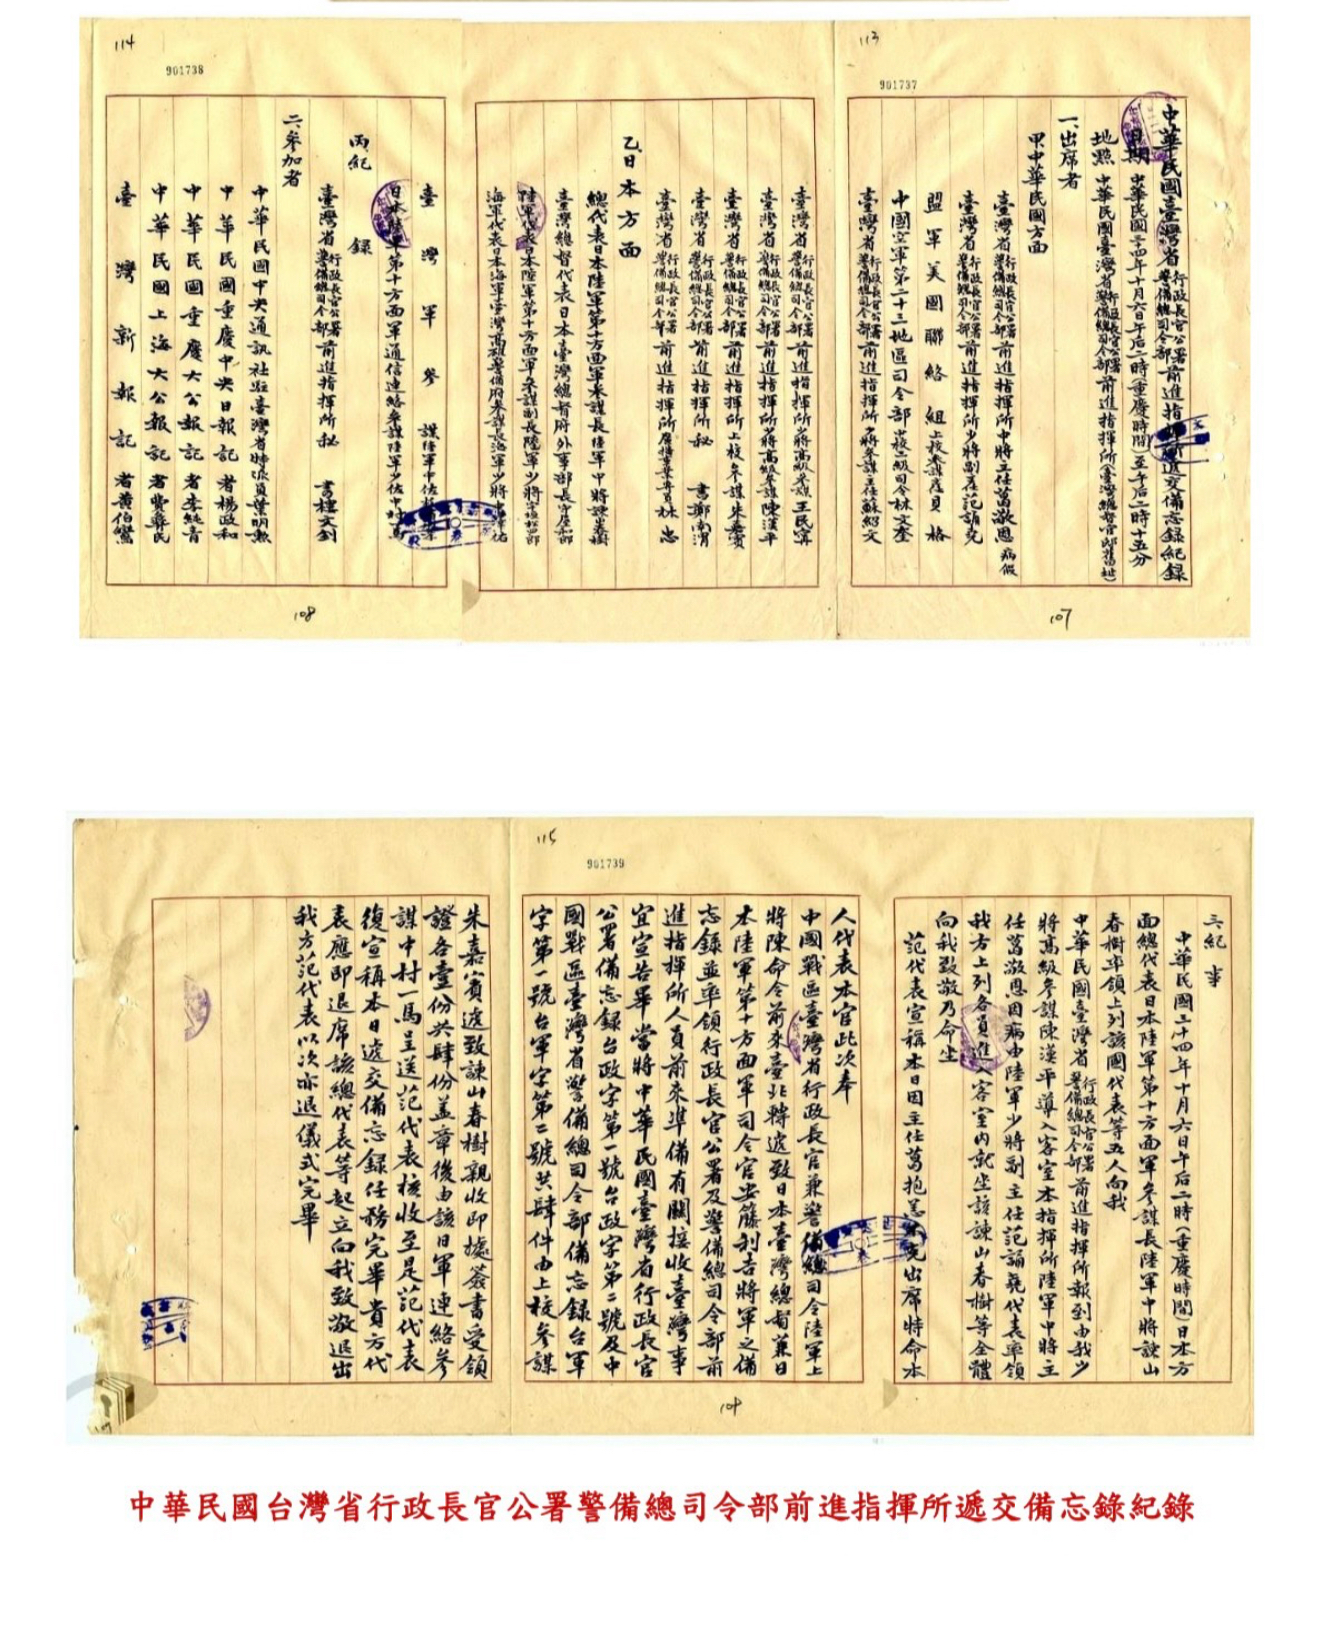 113
901737
中華民國臺灣省行政長官公署警備總司令部前進指揮所遞交備忘錄紀錄
日期 中華民國三十四年十月六日午后二時(重慶時間)至午后二時十五分
地點 中華民國臺灣省行政長官公署警備總司令部前進指揮所(臺灣總督官邸舊址)
一、出席者
甲、中華民國方面
臺灣省行政長官公署警備總司令部前進指揮所中將主任葛敬恩 病假
臺灣省行政長官公署警備總司令部前進指揮所少將副主任范誦堯
盟軍美國聯絡組上校 貝格
中國空軍第二十三地區司令部 司令林文奎
臺灣省行政長官公署警備總司令部前進指揮所少將參謀主任蘇紹文
107
臺灣省行政長官公署警備總司令部前進指揮所少將高級參謀王民寧
臺灣省行政長官公署警備總司令部前進指揮所少將高級參謀陳漢平
臺灣省行政長官公署警備總司令部前進指揮所上校參謀朱嘉賓
臺灣省行政長官公署警備總司令部前進指揮所秘書鄭南渭
臺灣省行政長官公署警備總司令部前進指揮所 專員林忠
乙、日本方面
總代表日本陸軍第十方面軍參謀長陸軍中將諫山春樹
臺灣總督代表日本臺灣總督府外事部長
陸軍代表日本陸軍第十方面軍參謀副長陸軍少將
海軍代表日本海軍臺灣高雄警備府參謀長海軍少將
114
901738
臺灣軍參謀陸軍中佐
日本陸軍第十方面軍通信連絡參謀陸軍少佐中村
丙、紀錄
臺灣省行政長官公署警備總司令部前進指揮所秘書 文釗
二、參加者
中華民國中央通訊社駐臺灣省特派員葉明勲
中華民國重慶中央日報記者楊政和
中華民國重慶大公報記者李純青
中華民國上海大公報記者費彝民
臺灣新報記者黃伯
108
三、紀事
中華民國三十四年十月六日午后二時(重慶時間)日本方
面總代表日本陸軍第十方面軍參謀長陸軍中將諫山
春樹率領上列該國代表等五人向我
中華民國臺灣省行政長官公署警備總司令部前進指揮所報到由我少
將高級參謀陳漢平導入客室本指揮所陸軍中將主
任葛敬恩因病由陸軍少將副主任范誦堯代表率領
我方上列各員進入客室內就坐該諫山春樹等全體
向我致敬乃命坐
范代表宣稱本日因主任葛抱恙不克出席特命本
115
901739
人代表本官此次奉
中國戰區臺灣省行政長官兼警備總司令陸軍上
將陳命令前來臺北轉遞致日本臺灣總督兼日
本陸軍第十方面軍司令官安藤利吉將軍之備
忘錄並率領行政長官公署及警備總司令部前
進指揮所人員前來準備有關接收臺灣事
宜宣告畢當將中華民國臺灣省行政長官
公署備忘錄台政字第一號台政字第二號及中
國戰區臺灣省警備總司令部備忘錄台軍
字第一號台軍字第二號共肆件由上校參謀
109
朱嘉賓遞致諫山春樹親收即據簽書受領
證各壹份共肆份蓋章後由該日軍連絡參
謀中村一馬呈送范代表核收至是范代表
復宣稱本日遞交備忘錄任務完畢貴方代
表應即退席該總代表等起立向我致敬退出
我方范代表以次亦退儀式完畢
中華民國台灣省行政長官公署警備總司令部前進指揮所遞交備忘錄紀錄